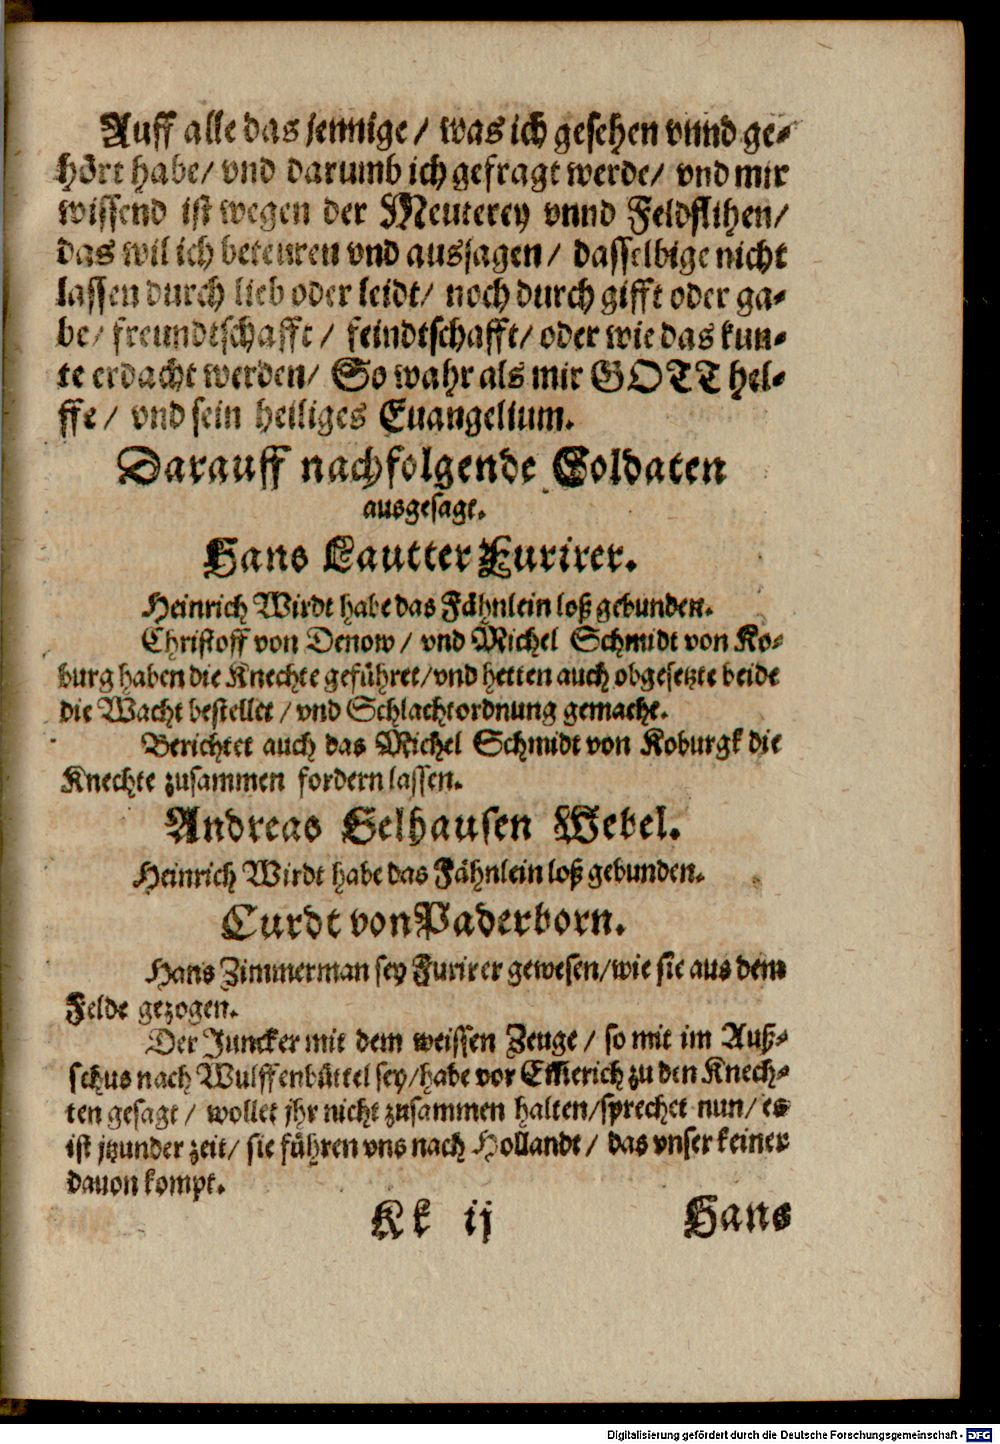 Auff alle das jennige / was ich gesehen vnnd ge-
hört habe / vnd darumb ich gefragt werde / vnd mir
wissend ist wegen der Meuterey vnnd Feldflihen /
das wil ich beteuren vnd aussagen / dasselbige nicht
lassen durch lieb oder leidt / noch durch gifft oder ga-
be / freundtschafft / feindtschafft / oder wie das kun-
te erdacht werden / So wahr als mir GOTT hel-
ffe / vnd sein heiliges Euangelium.
Darauff nachfolgende Soldaten
ausgesagt.
Hans Lautter Furirer.
Heinrich Wirdt habe das Fähnlein loß gebunden.
Christoff von Denow / vnd Michel Schmidt von Ko-
burg haben die Knechte geführet / vnd hetten auch obgesetzte beide
die Wacht bestellet / vnd Schlachtordnung gemacht.
Berichtet auch das Michel Schmidt von Koburgk die
Knechte zusammen fordern lassen.
Andreas Selhausen Webel.
Heinrich Wirdt habe das Fähnlein loß gebunden.
Curdt von Paderborn.
Hans Zimmerman sey Furirer gewesen / wie sie aus dem
Felde gezogen.
Der Juncker mit dem weissen Zeuge / so mit im Auß-
schus nach Wulffenbüttel sey / habe vor Ellerich zu den Knech-
ten gesagt / wollet jhr nicht zusammen halten / sprechet nun / es
ist jtzunder zeit / sie führen vns nach Hollandt / das vnser keiner
dauon kompt.
Kk ij Hans
Digitalisierung gefördert durch die Deutsche Forschungsgemeinschaft - DFG